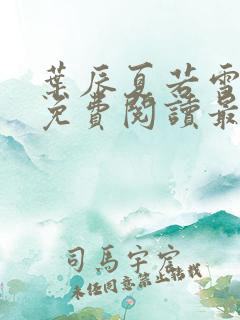 葉辰夏若雪
免費閱讀最
司馬宇宏
未經同意禁止轉載